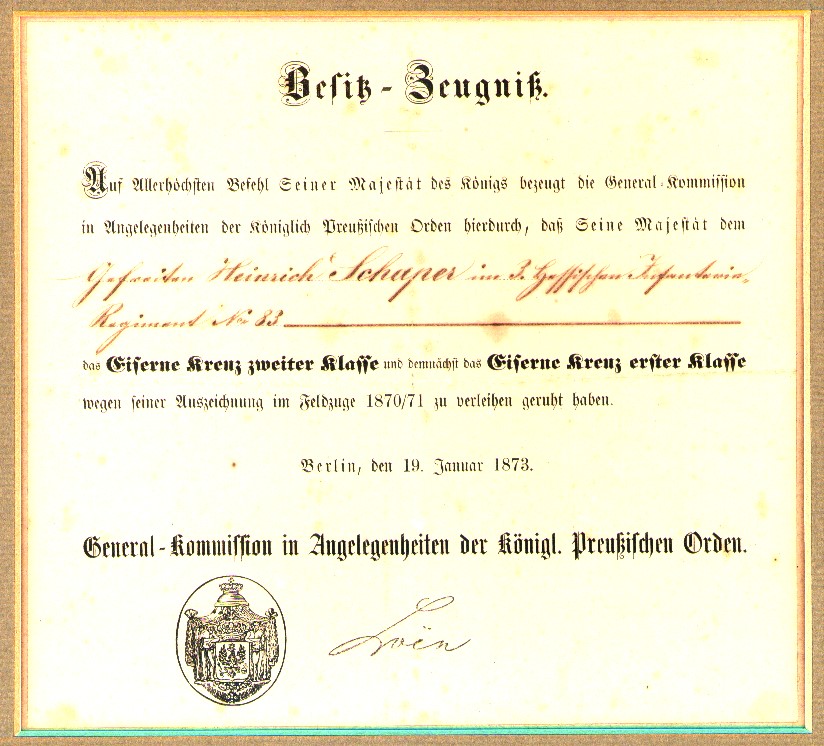 Besitz-Zeugniß.
Auf Allerhöchsten Befehl Seiner Majestät des Königs bezeugt die General-Kommission
in Angelegenheiten der Königlich Preußischen Orden hierdurch, daß Seine Majestät dem
Gefreiten Heinrich Schuper im 3. Hessischen Infanterie-
Regiment No 83
das Eiserne Kreuz zweiter Klasse und demnächst das Eiserne Kreuz erster Klasse
wegen seiner Auszeichnung im Feldzuge 1870/71 zu verleihen geruht haben.
Berlin, den 19. Januar 1873.
General-Kommission in Angelegenheiten der Königl. Preußischen Orden.
Loën